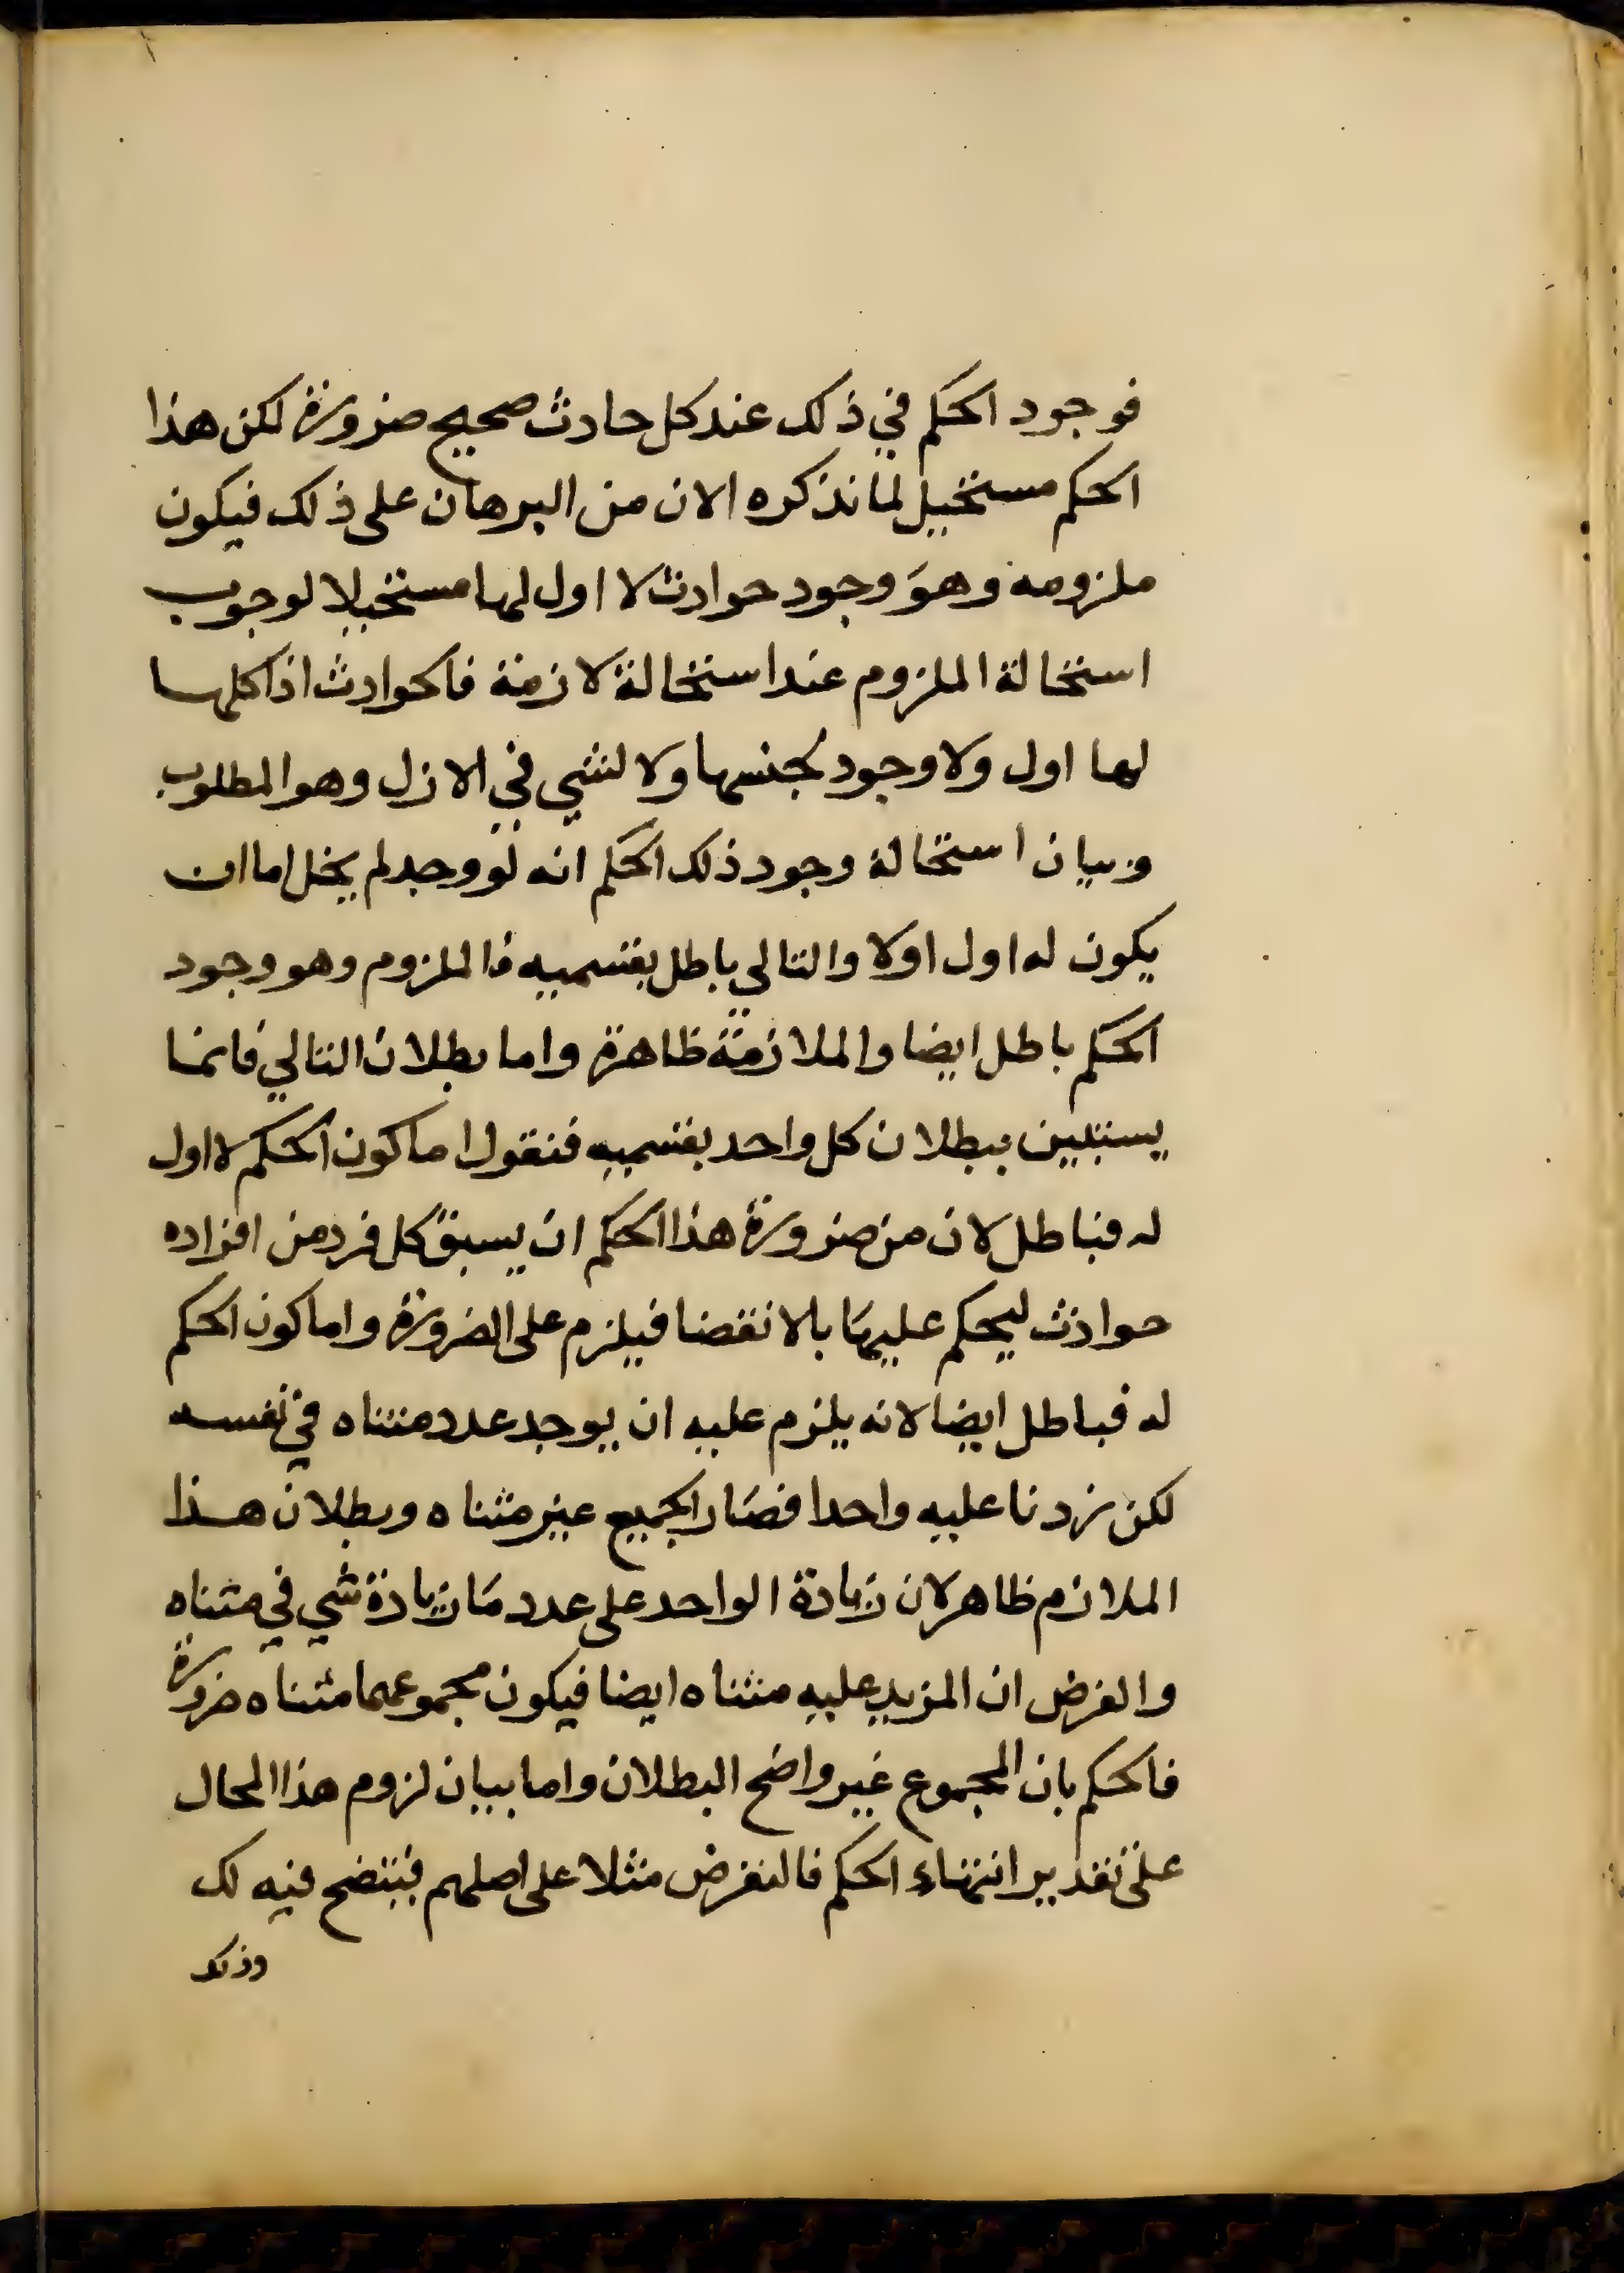 فوجود الحكم في ذلك عند كل حادث صحيح ضرورة لكن هذا
الحكم مستحيل لما نذكره الان من البرهان على ذلك فيكون
ملزومه وهو وجود حوادث لا اول لها مستحيلا لوجوب
استحالة الملزوم عند استحالة لازمة فالحوادث اذا كلها
لها اول ولا وجود لجنسها ولا لشي في الازل وهو المطلوب
وبيان استحالة وجود ذلك الحكم انه لو وجد لم يخل اما ان
يكون له اول اولا والتالي باطل بقسميه فالملزوم وهو وجود
الحكم باطل ايضا والملازمة ظاهرة واما بطلان التالي فانما
يستبين ببطلان كل واحد بقسميه فنقول اما كون الحكم لا اول
له فباطل لان من ضرورة هذا الحكم ان يسبق كل فرد من افراده
حوادث ليحكم عليها بالانقضا فيلزم على الضرورة واما كون الحكم
له فباطل ايضا لانه يلزم عليه ان يوجد عدد متناه في نفسه
لكن زدنا عليه واحدا فصار الجميع غير متناه وبطلان هذا
الملازم ظاهر لان زيادة الواحد على عدد ما زيادة شي في متناه
والفرض ان المزيد عليه متناه ايضا فيكون مجموعهما متناه ضرورة
فالحكم بان المجموع غير واضح البطلان واما بيان لزوم هذا المحال
على تقدير انتهاء الحكم فالنفرض مثلا على اصلهم فيتضح فيه لك
وذلك